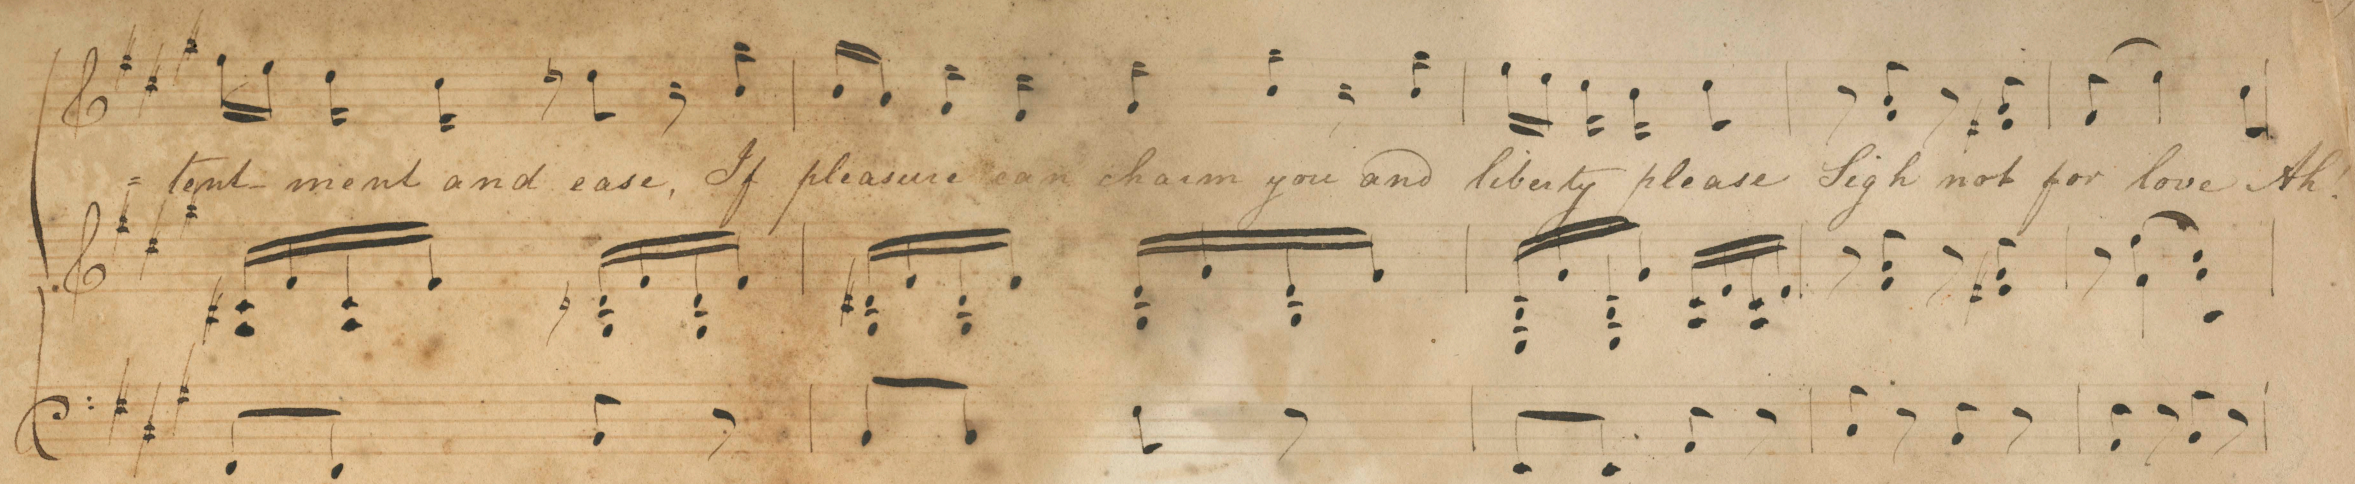 = tent- ment and ease, If pleasure can charm you and liberty please Sigh not for love Ah!